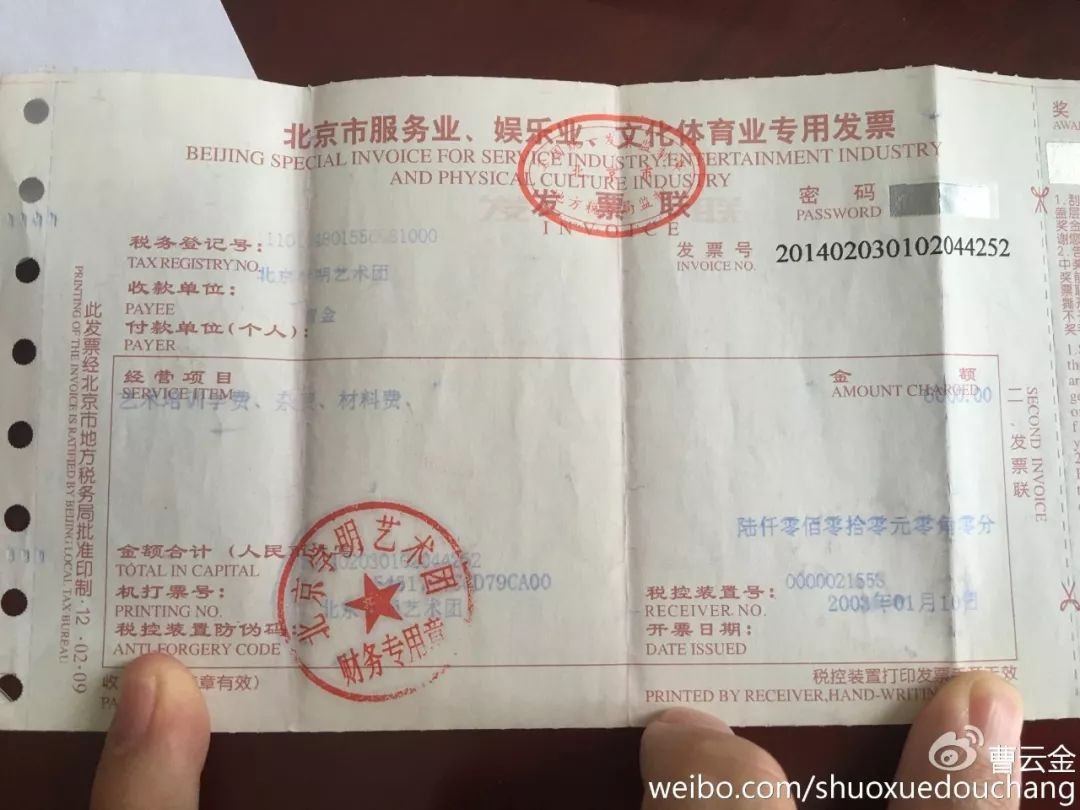 北京市服务业、娱乐业、文化体育业专用发票
BEIJING SPECIAL INVOICE FOR SERVICE INDUSTRY.ENTERTAINMENT INDUSTRY
AND PHYSICAL CULTURE INDUSTRY
发票联
INVOICE
密码
PASSWORD
发票号
INVOICE NO.
201402030102044252
税务登记号：
TAX REGISTRY NO.
收款单位：
PAYEE
付款单位(个人)：
PAYER
经营项目
SERVICE ITEM
艺术培训学费、杂费、材料费、
金额
AMOUNT CHARGED
陆仟零佰零拾零元零角零分
金额合计（人民币
TOTAL IN CAPITAL
机打票号：
PRINTING NO.
税控装置防伪码：
ANTI-FORGERY CODE
艺术团
财务专用章
税控装置号：
RECEIVER NO.
2003年01月10日
开票日期：
DATE ISSUED
章有效）
税控装置打印发票
PRINTED BY RECEIVER,HAND-WRITIN
此发票经北京市地方税务局批准印制·12·02·09
PRINTING OF THE INVOICE IS RATIFIED BY BEIJING LOCAL TAX BUREAU
SECOND INVOICE
二、发票联
奖
曹云金
weibo.com/shuoxuedouchang